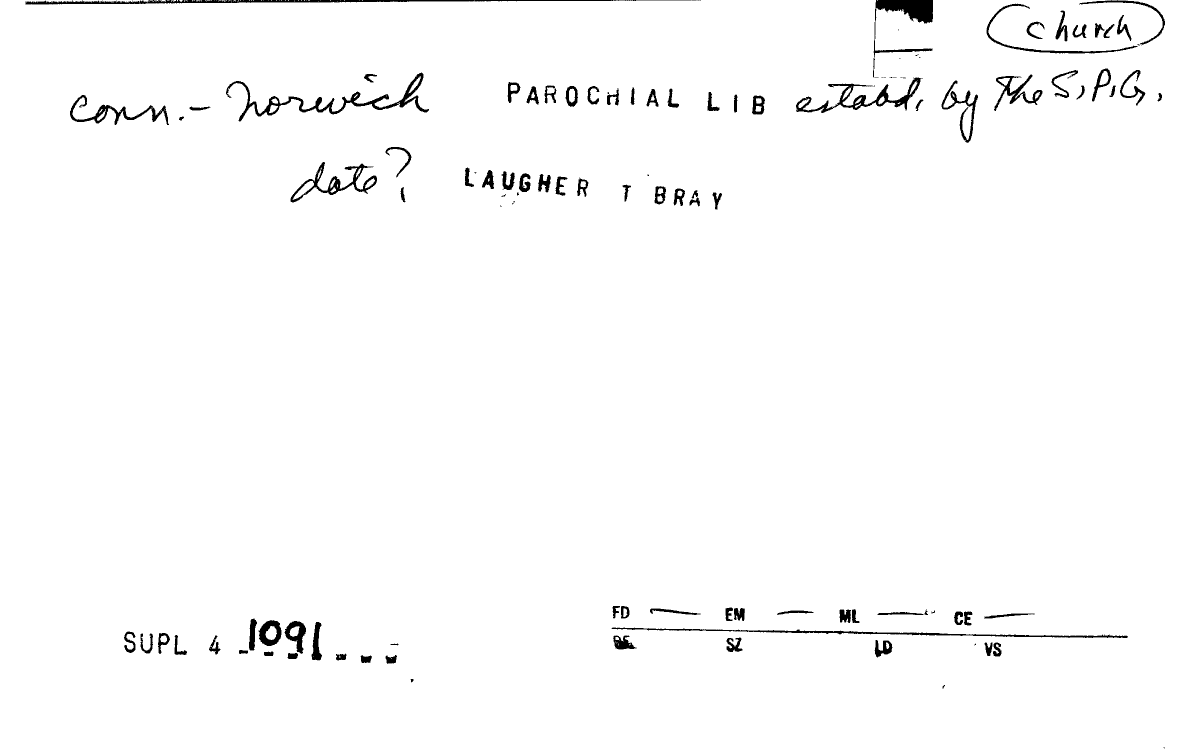 church
conn. - Norwich PAROCHIAL LIB estabd. by the S.P.G.
date? LAUGHER T BRAY
SUPL 4 1091
FD EM ML CE
SZ LD VS